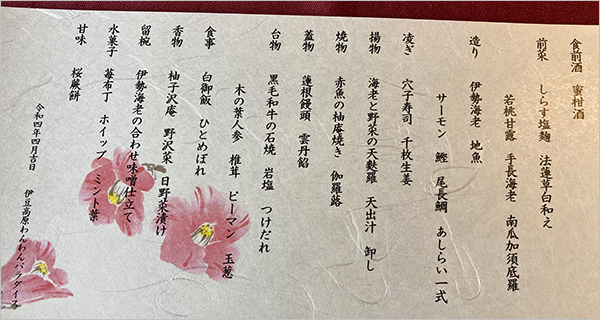 食前酒 蜜柑酒
前菜 しらす塩麹 法蓮草白和え
若桃甘露 手長海老 南瓜加須底羅
造り 伊勢海老 地魚
サーモン 鰹 尾長鯛 あしらい一式
凌ぎ 穴子寿司 千枚生姜
揚物 海老と野菜の天麩羅 天出汁 卸し
焼物 赤魚の柚庵焼き 伽羅蕗
蓋物 蓮根饅頭 雲丹餡
台物 黒毛和牛の石焼 岩塩 つけだれ
木の葉人参 椎茸 ピーマン 玉葱
食事 白御飯 ひとめぼれ
香物 柚子沢庵 野沢菜 日野菜漬け
留椀 伊勢海老の合わせ味噌仕立て
水菓子 苺布丁 ホイップ ミント葉
甘味 桜蕨餅
令和四年四月吉日 伊豆高原わんわんパラダイス